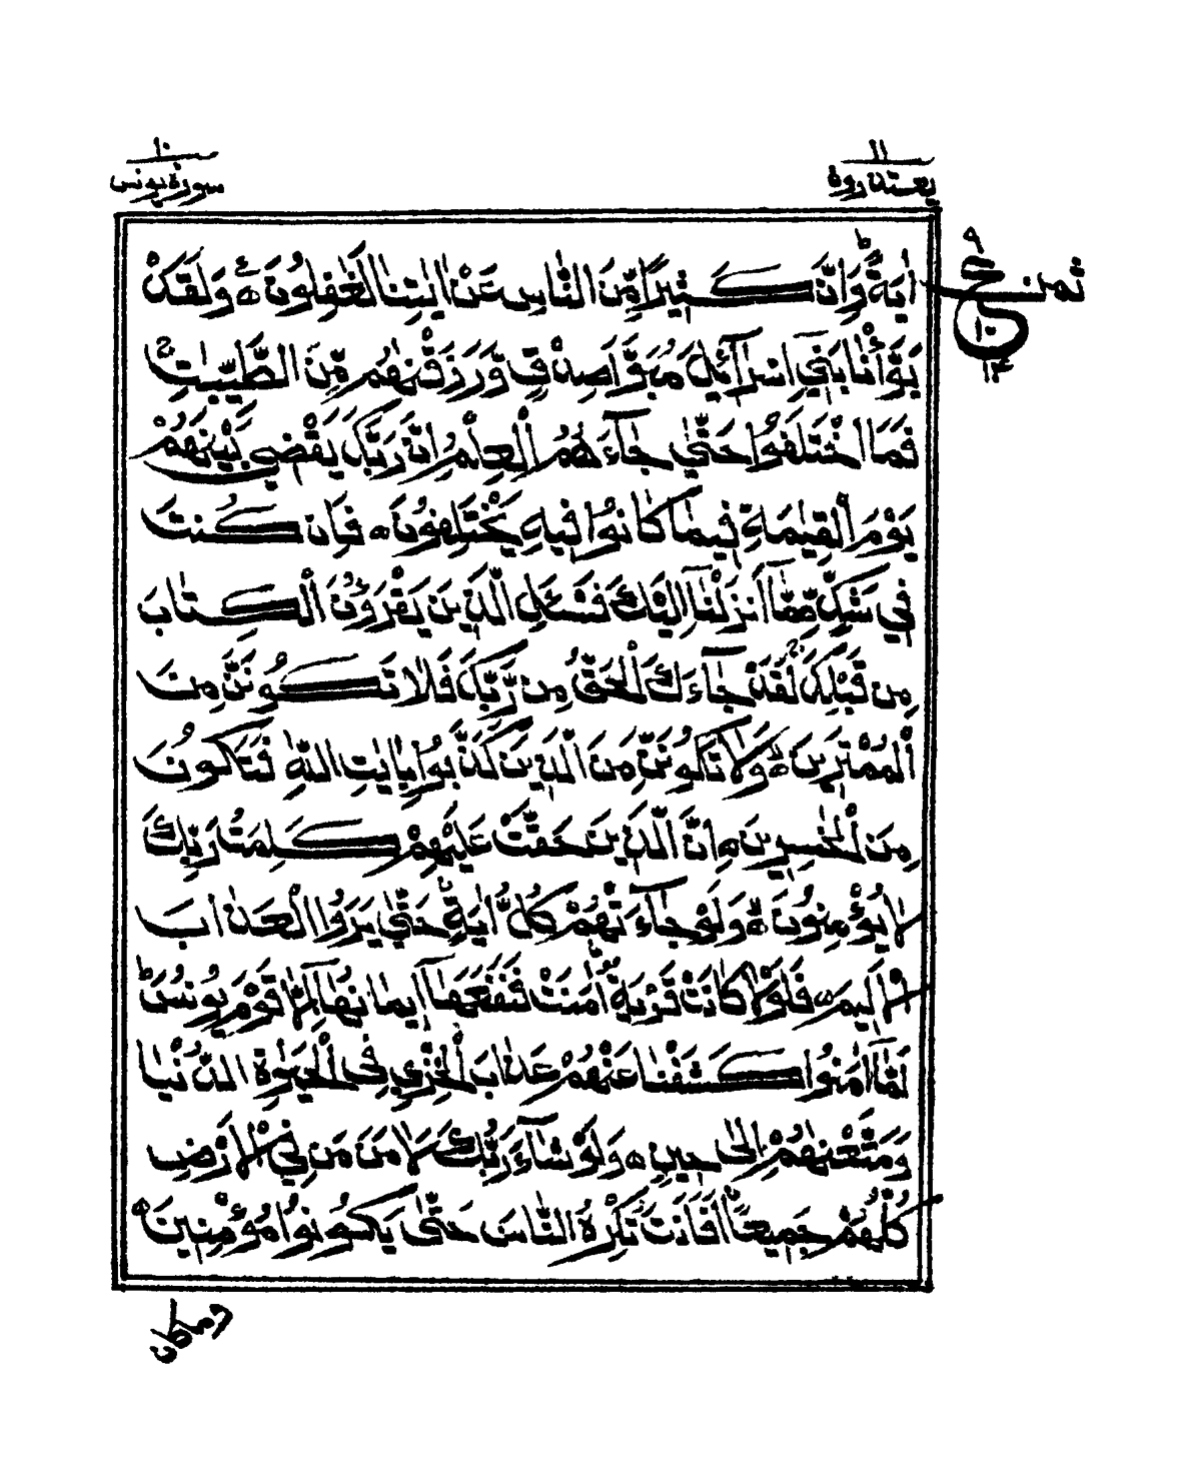 ١٠
سورة يونس
١١
يعتذرون
اٰيَةً ؕ وَاِنَّ كَثِيْرًا مِّنَ النَّاسِ عَنْ اٰيٰتِنَا لَغٰفِلُوْنَ ۝ وَلَقَدْ
ثمن
٩
ع
١٠
١٤
بَوَّأْنَا بَنِيْٓ اِسْرَآئِيْلَ مُبَوَّاَ صِدْقٍ وَّرَزَقْنٰهُمْ مِّنَ الطَّيِّبٰتِ ۚ
فَمَا اخْتَلَفُوْا حَتّٰى جَآءَهُمُ الْعِلْمُ اِنَّ رَبَّكَ يَقْضِيْ بَيْنَهُمْ
يَوْمَ الْقِيٰمَةِ فِيْمَا كَانُوْا فِيْهِ يَخْتَلِفُوْنَ ۝ فَاِنْ كُنْتَ
فِيْ شَكٍّ مِّمَّآ اَنْزَلْنَآ اِلَيْكَ فَسْـَٔلِ الَّذِيْنَ يَقْرَءُوْنَ الْكِتٰبَ
مِنْ قَبْلِكَ ۚ لَقَدْ جَآءَكَ الْحَقُّ مِنْ رَّبِّكَ فَلَا تَكُوْنَنَّ مِنَ
الْمُمْتَرِيْنَ ۝ وَلَا تَكُوْنَنَّ مِنَ الَّذِيْنَ كَذَّبُوْا بِاٰيٰتِ اللّٰهِ فَتَكُوْنَ
مِنَ الْخٰسِرِيْنَ ۝ اِنَّ الَّذِيْنَ حَقَّتْ عَلَيْهِمْ كَلِمَتُ رَبِّكَ
لَا يُؤْمِنُوْنَ ۝ وَلَوْ جَآءَتْهُمْ كُلُّ اٰيَةٍ حَتّٰى يَرَوُا الْعَذَابَ
الْاَلِيْمَ ۝ فَلَوْلَا كَانَتْ قَرْيَةٌ اٰمَنَتْ فَنَفَعَهَآ اِيْمَانُهَآ اِلَّا قَوْمَ يُوْنُسَ ؕ
لَمَّآ اٰمَنُوْا كَشَفْنَا عَنْهُمْ عَذَابَ الْخِزْيِ فِى الْحَيٰوةِ الدُّنْيَا
وَمَتَّعْنٰهُمْ اِلٰى حِيْنٍ ۝ وَلَوْ شَآءَ رَبُّكَ لَاٰمَنَ مَنْ فِى الْاَرْضِ
كُلُّهُمْ جَمِيْعًا ؕ اَفَاَنْتَ تُكْرِهُ النَّاسَ حَتّٰى يَكُوْنُوْا مُؤْمِنِيْنَ ۝
وماكان